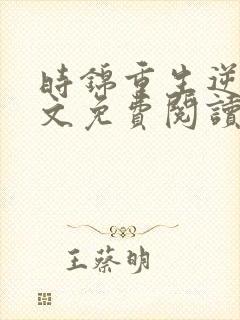 時錦重生逆
文免費閱讀
王蔡明